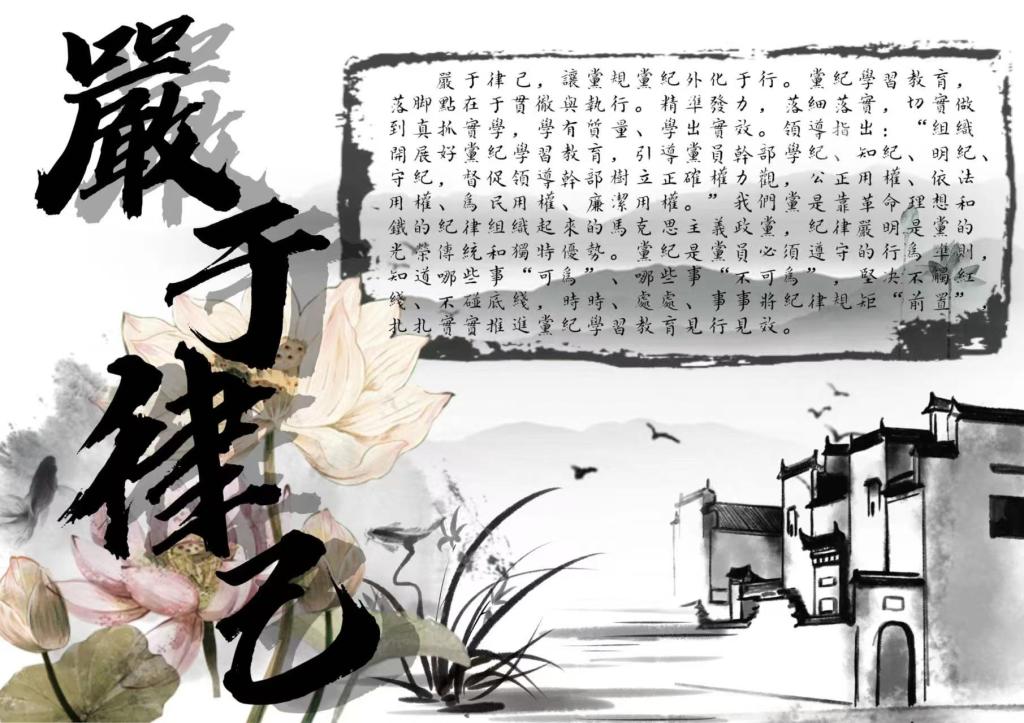 嚴于律己
嚴于律己，讓黨規黨紀外化于行。黨紀學習教育，
落脚點在于貫徹與執行。精準發力，落細落實，切實做
到真抓實學，學有質量、學出實效。領導指出：“組織
開展好黨紀學習教育，引導黨員幹部學紀、知紀、明紀、
守紀，督促領導幹部樹立正確權力觀，公正用權、依法
用權、爲民用權、廉潔用權。”我們黨是靠革命理想和
鐵的紀律組織起來的馬克思主義政黨，紀律嚴明是黨的
光榮傳統和獨特優勢。黨紀是黨員必須遵守的行爲準則，
知道哪些事“可爲”、哪些事“不可爲”，堅决不觸紅
綫、不碰底綫，時時、處處、事事將紀律規矩“前置”
扎扎實實推進黨紀學習教育見行見效。